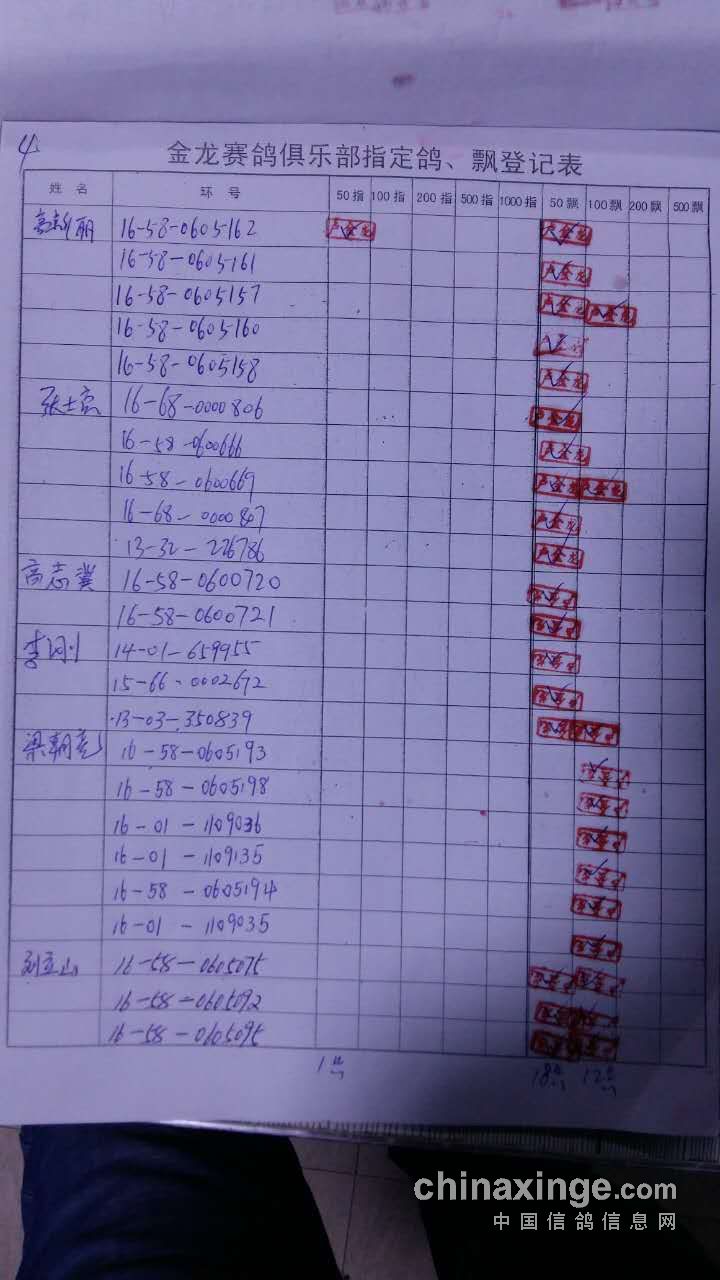 4
金龙赛鸽俱乐部指定鸽、飘登记表
姓 名 环 号 50指 100指 200指 500指 1000指 50飘 100飘 200飘 500飘
16-58-0605162
16-58-0605161
16-58-0605157
16-58-0605160
16-58-0605158
16-68-0000806
16-58-0600666
16-58-0600669
16-68-0000807
13-32-226786
高志冀 16-58-0600720
16-58-0600721
李刚 14-01-659955
15-66-0002672
13-03-350839
梁朝彪 16-58-0605193
16-58-0605198
16-01-1109036
16-01-1109135
16-58-0605194
16-01-1109035
刘立山 16-58-0605075
16-58-0605092
16-58-0605095
1 18 12
chinaxinge.com
中国信鸽信息网